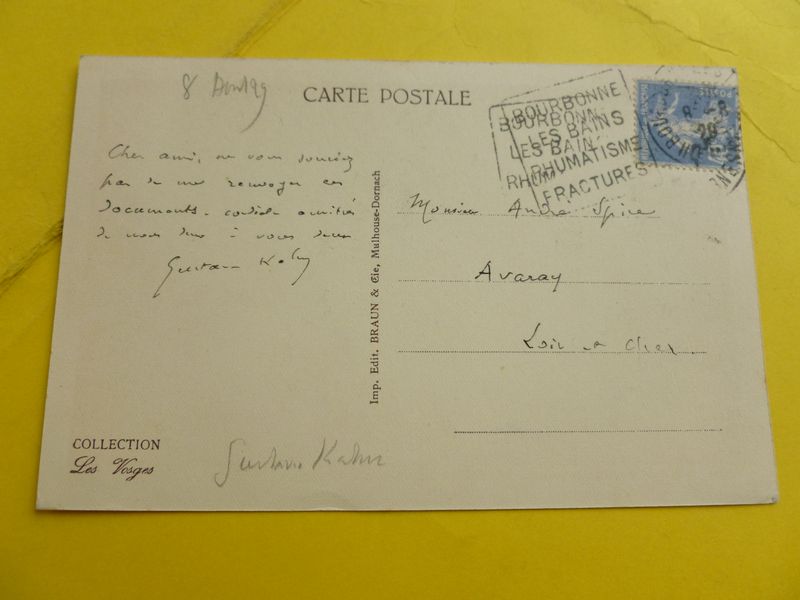 8 Aout 29
CARTE POSTALE
BOURBONNE
LES BAINS
RHUMATISMES
FRACTURES
BOURBONN
LES BAIN
RHUM
8 -8
29
Cher ami, ne vous souciez
pas de me renvoyer ces
documents. cordiales amitiés
de nous deux à vous deux
Gustave Kahn
Monsieur André Spire
Avaray
Loir et Cher
Imp. Edit. BRAUN & Cie, Mulhouse-Dornach
COLLECTION
Les Vosges
Gustave Kahn